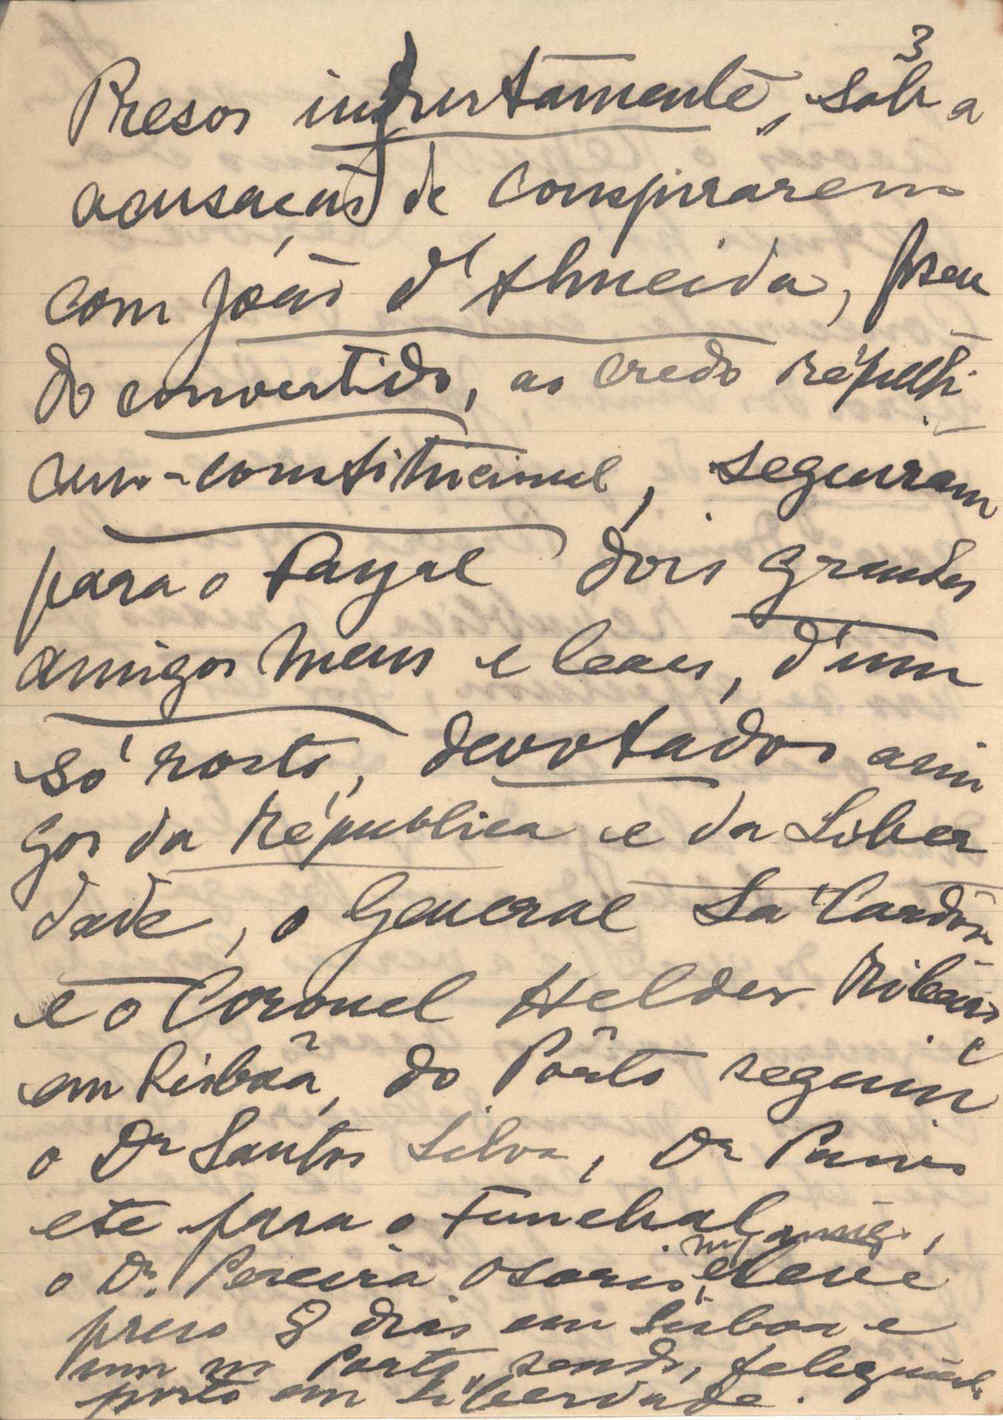 3
Presos injustamente, sôb a
acusação de conspirarem
com João d'Almeida, pseu
do convertido, ao credo républi
cano-constitucional, seguiram
para o Fayal dois grandes
amigos meus e leaes, d'um
só rosto, devotados ami
gos da República e da Liber
dade, o General Sá Cardoso
e o Coronel Helder Ribeiro
em Lisbôa, do Pôrto seguiu
o Dr Santos Silva, Dr Pires
etc para o Funchal,
o Dr. Pereira Osorio, m/ amigo, esteve
preso 8 dias em Lisboa e
um no Porto, sendo, felizmente
posto em Liberdade.